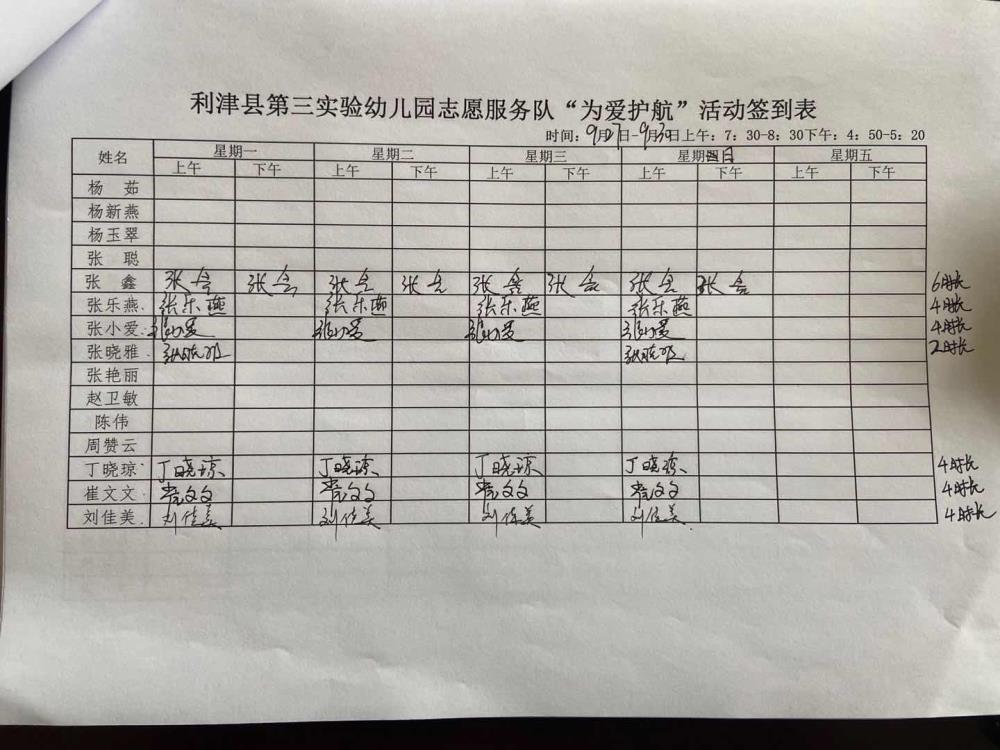 利津县第三实验幼儿园志愿服务队“为爱护航”活动签到表
时间：9月27日-9月30日上午：7：30-8：30下午：4：50-5：20
姓名 星期一 星期二 星期三 星期四 星期五
上午 下午 上午 下午 上午 下午 上午 下午 上午 下午
杨 茹
杨新燕
杨玉翠
张 聪
张 鑫 张鑫 张鑫 张鑫 张鑫 张鑫 张鑫 张鑫 张鑫 6时长
张乐燕 张乐燕 张乐燕 张乐燕 张乐燕 4时长
张小爱 张小爱 张小爱 张小爱 张小爱 4时长
张晓雅 张晓雅 张晓雅 2时长
张艳丽
赵卫敏
陈伟
周赞云
丁晓琼 丁晓琼 丁晓琼 丁晓琼 丁晓琼 4时长
崔文文 崔文文 崔文文 崔文文 崔文文 4时长
刘佳美 刘佳美 刘佳美 刘佳美 刘佳美 4时长